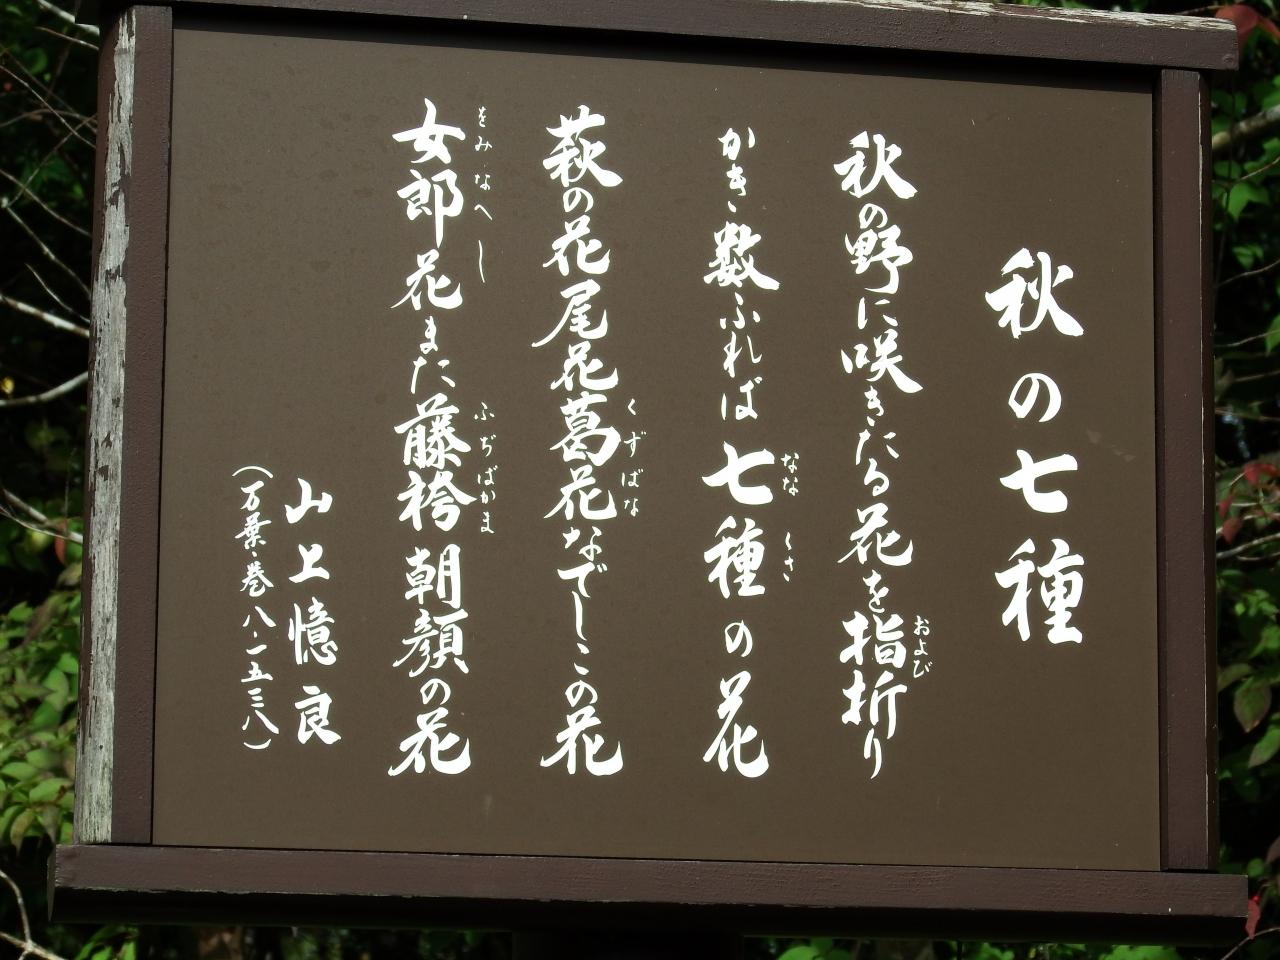 秋の七種
秋の野に咲きたる花を指折り
および
かき数ふれば七種の花
なな くさ
萩の花尾花葛花なでしこの花
くずばな
女郎花また藤袴朝顔の花
をみなへし ふぢばかま
山上憶良
(万葉・巻八・一五三八)